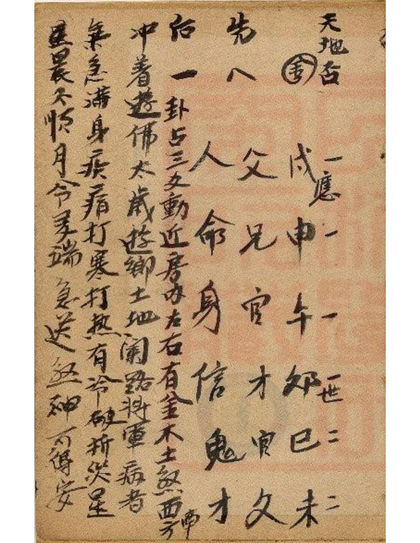 天地否 一應一 一 一世二 二
金 戌申午卯巳未
先八 父兄官才官父
人命身信鬼才
后一卦占三爻動近房内左右有金木土煞西方
冲着遊佛太歲遊鄉土地闌路將軍病者
氣急滿身疾痛打寒打热有冷破折災星
星晨不順月令異端急送煞神可得安